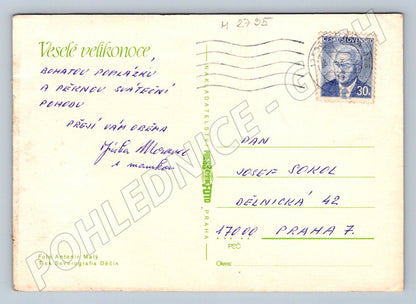 M 2795
Veselé velikonoce
BOHATOU POMLÁZKU
A PĚKNOU SVÁTEČNÍ
POHODU
PŘEJÍ VÁM OBĚMA
s mamkou
ČESKOSLOVENSKO
30h
NAKLADATELSTVÍ
PRAHA
PAN
JOSEF SOKOL
DĚLNICKÁ 42
17000 PRAHA 7.
PSČ
Okres:
Foto Antonín Malý
Tisk Severografia Děčín
POHLEDNICE